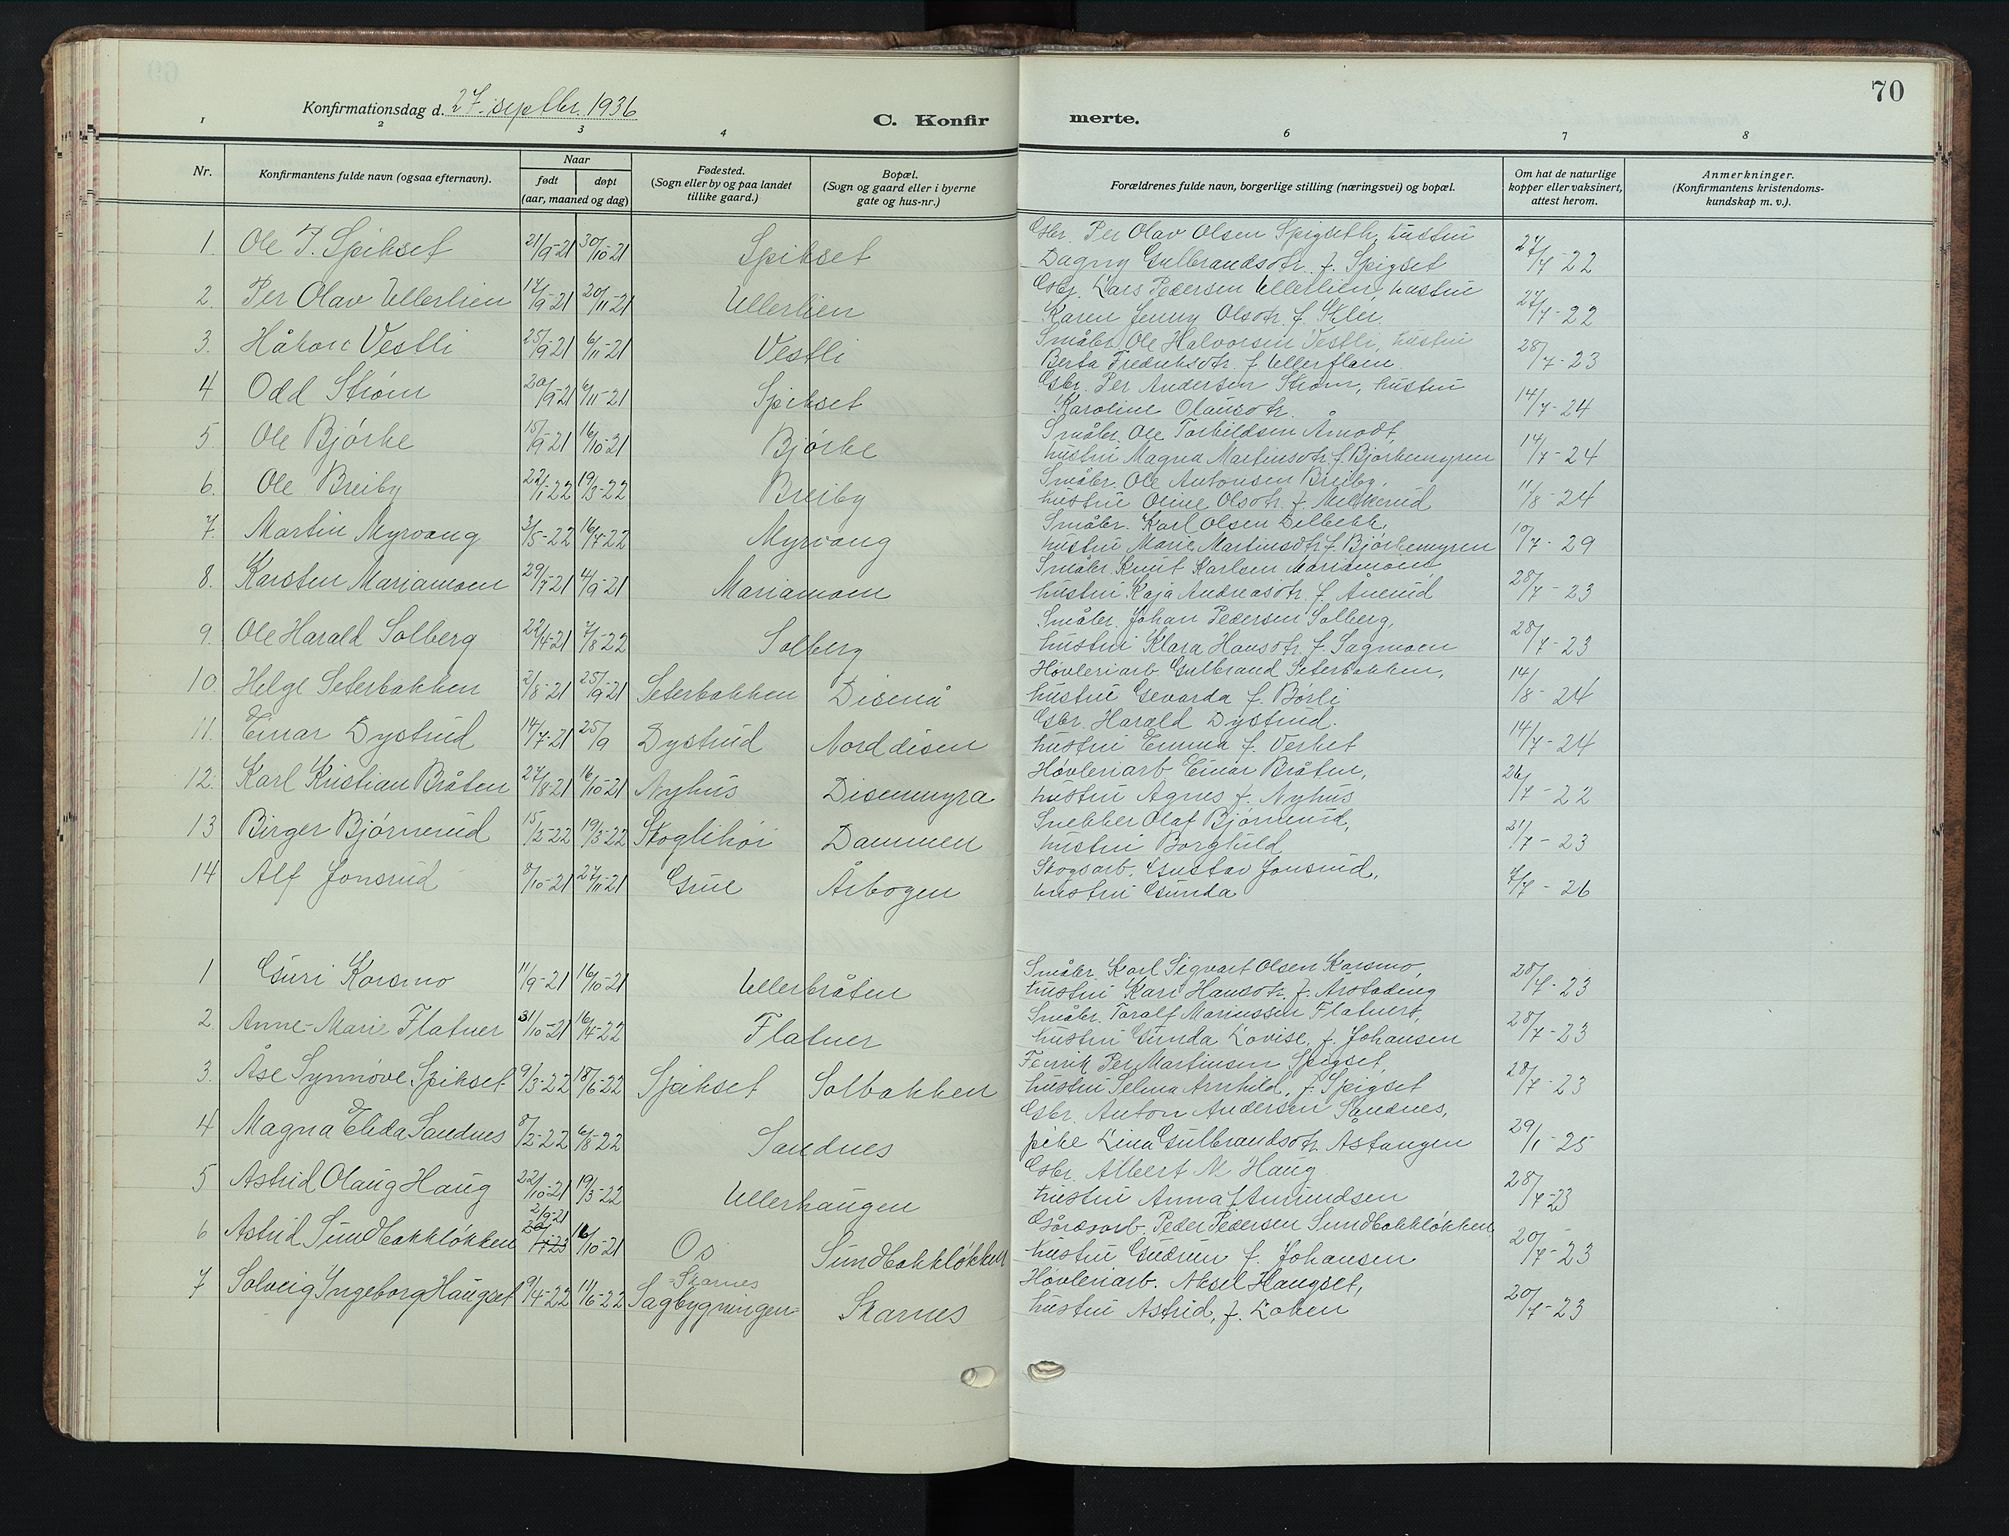 70
Konfirmationsdag d. 27. septbr. 1936
C. Konfir merte.
1 2 3 4 6 7 8
Nr. Konfirmantens fulde navn (ogsaa efternavn). Naar født døpt (aar, maaned og dag) Fødested. (Sogn eller by og paa landet tillike gaard.) Bopæl. (Sogn og gaard eller i byerne gate og hus-nr.) Forældrenes fulde navn, borgerlige stilling (næringsvei) og bopæl. Om hat de naturlige kopper eller vaksinert, attest herom. Anmerkninger. (Konfirmantens kristendoms-kundskap m. v.).
1. Ole P. Spikset 21/9-21 30/10-21 Spikset Gbr. Per Olav Olsen Spigseth, hustru
Dagny Gulbrandsdtr. f. Spigset 27/7-22
2. Per Olav Ullerlien 17/9-21 20/11-21 Ullerlien Gbr. Lars Pedersen Ullerlien, hustru
Karen Jenny Olsdtr. f. 27/7-22
3. Håkon Vestli 25/9-21 6/11-21 Vestli Småbr. Ole Halvorsen Vestli, hustru
Berta Fredriksdtr. f. Ullerflaen 28/7-23
4 Odd Strøm 20/9-21 6/11-21 Spikset Gbr. Per Andersen Strøm, hustru
Karoline Olausdtr. 14/7-24
5. Ole Bjørke 15/9-21 16/10-21 Bjørke Småbr. Ole Torkildsen Åmodt,
hustru Magna Martinsdtr. f. Bjørkemyren 14/7-24
6. Ole Breiby 22/1-22 19/3-22 Breiby Småbr. Ole Antonsen Breiby,
hustru Oline Olsdtr. f. Melkerud 11/8-24
7. Martin Myrvang 3/5-22 16/7-22 Myrvang Småbr. Karl Olsen Delbekk,
hustru Marie Martinsdtr. f. Bjørkemyren 10/7-29
8. Karsten Mariamoen 29/7-21 4/9-21 Mariamoen Småbr. Knut Karlsen Mariamoen
hustru Kaja Andreasdtr. f. Ånerud 28/7-23
9. Ole Harald Solberg 22/4-21 7/8-22 Solberg Småbr. Johan Pedersen Solberg,
hustru Klara Hansdtr. f. Sagmoen 28/7-23
10. Helge Seterbakken 2/8-21 25/9-21 Seterbakken Disenå Høvleriarb. Gulbrand Seterbakken,
hustru Gevarda f. Borli 14/8-24
11. Einar Dystrud 14/7-21 25/9 Dystrud Norddisen Gbr. Harald Dystrud.
hustru Emma f. Verket 14/7-24
12. Karl Kristian Bråten 27/8-21 16/10-21 Nyhus Disenmyra Høvleriarb Einar Bråten,
hustru Agnes f. Nyhus 26/7-22
13 Birger Bjørnerud 15/2-22 19/3-22 Skoglihøi Dammen Snekker Olaf Bjørnerud,
hustru Borghild 21/7-23
14 Alf Jonsrud 8/10-21 27/11-21 Grue Årbogen Skogsarb. Gustav Jonsrud,
hustru Gunda 7/7-26
1 Guri Korsmo 11/9-21 16/10-21 Ullerbråten Småbr. Karl Sigvart Olsen Korsmo,
hustru Kari Hansdtr. f. Arstadeng 28/7-23
2. Anne-Marie Flatner 31/10-21 16/4-22 Flatner Småbr. Toralf Mariussen Flatner,
hustru Gunda Lovise, f. Johansen 28/7-23
3. Åse Synnøve Spikset 9/3-22 18/6-22 Spikset Solbakken Fenrik Per Martinsen Spigset,
hustru Selma Arnhild, f. Spigset 28/7-23
4 Magna Elida Sandnes 8/2-22 6/8-22 Sandnes Gbr. Anton Andersen Sandnes,
pike Lina Gulbrandsdtr. Åstangen 29/1-25
5 Astrid Olaug Haug 22/10-21 19/3-22 Ullerhaugen Gbr. Albert M. Haug
hustru Anna f. Amundsen 28/7-23
6 Astrid Sundbakkløkken 2/9-21 16/10-21 Os Sundbakkløkken Gårdsarb. Peder Pedersen Sundbakkløkken
hustru Gudrun f. Johansen 20/7-23
7 Solveig Ingeborg Haugset 9/4-22 11/6-22 Skarnes Sagbygningen Skarnes Høvleriarb. Aksel Haugset,
hustru Astrid, f. Loken 20/7-23